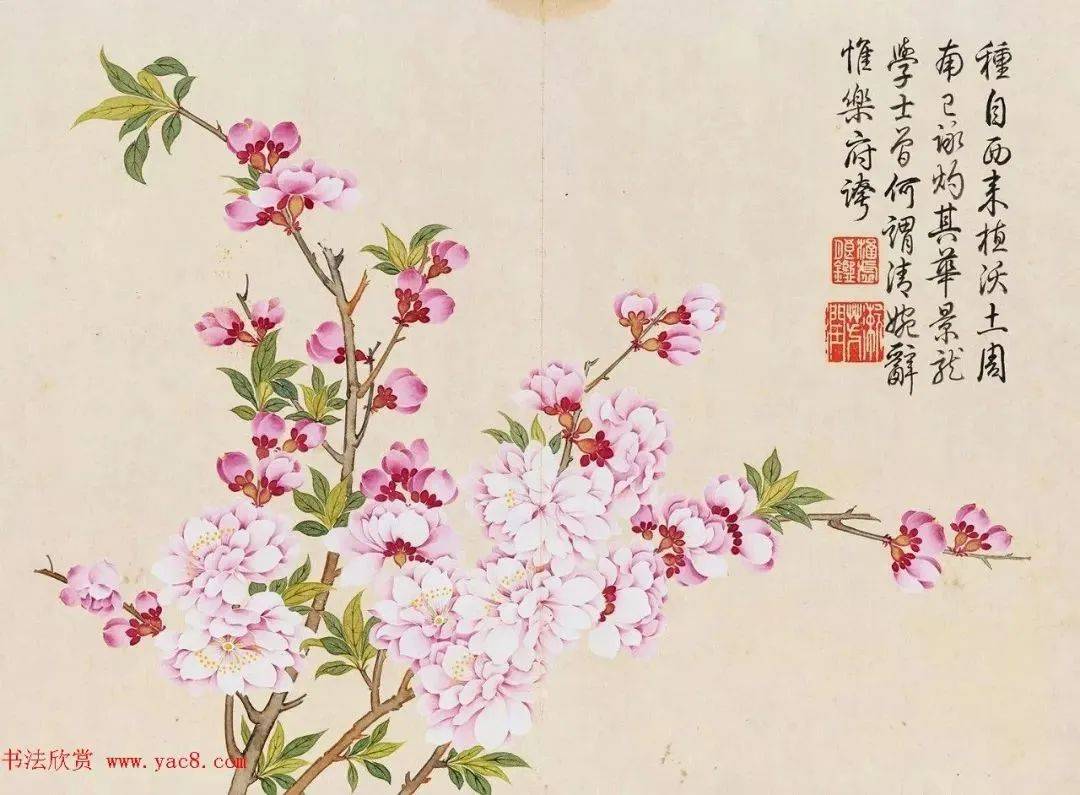 種自西来植沃土周
南已詠灼其華景龍
學士曾何謂清婉辭
惟樂府誇
书法欣赏 www.yac8.com